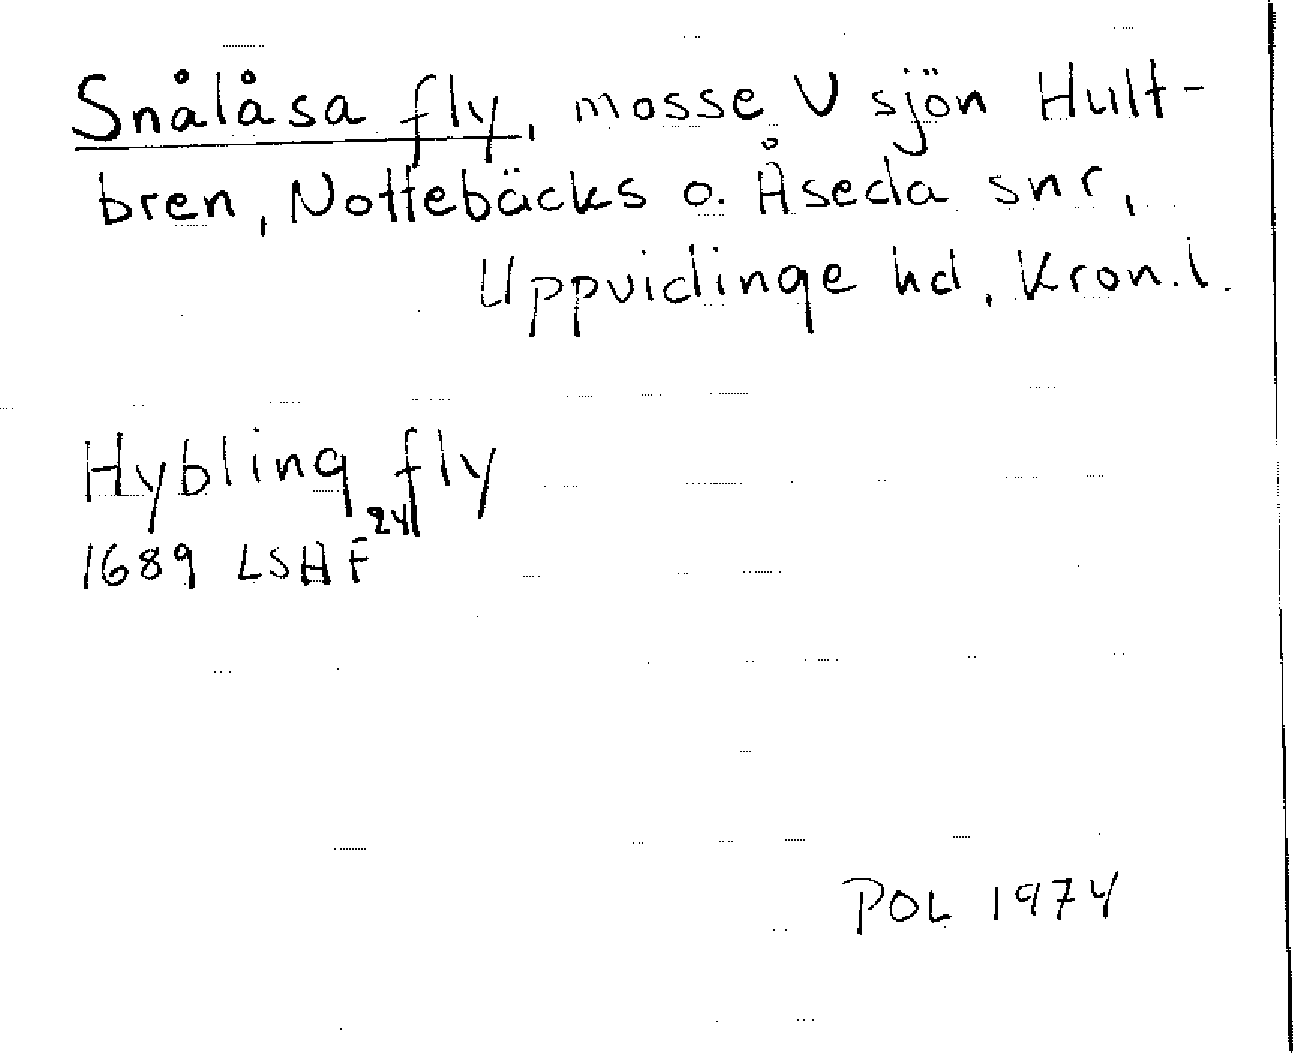 Snålåsa fly, mosse V sjön Hult-
bren, Nottebäcks o. Åseda snr,
Uppvidinge hd, Kron.l.
Hybling fly
1689 LSHF 24
POL 1974